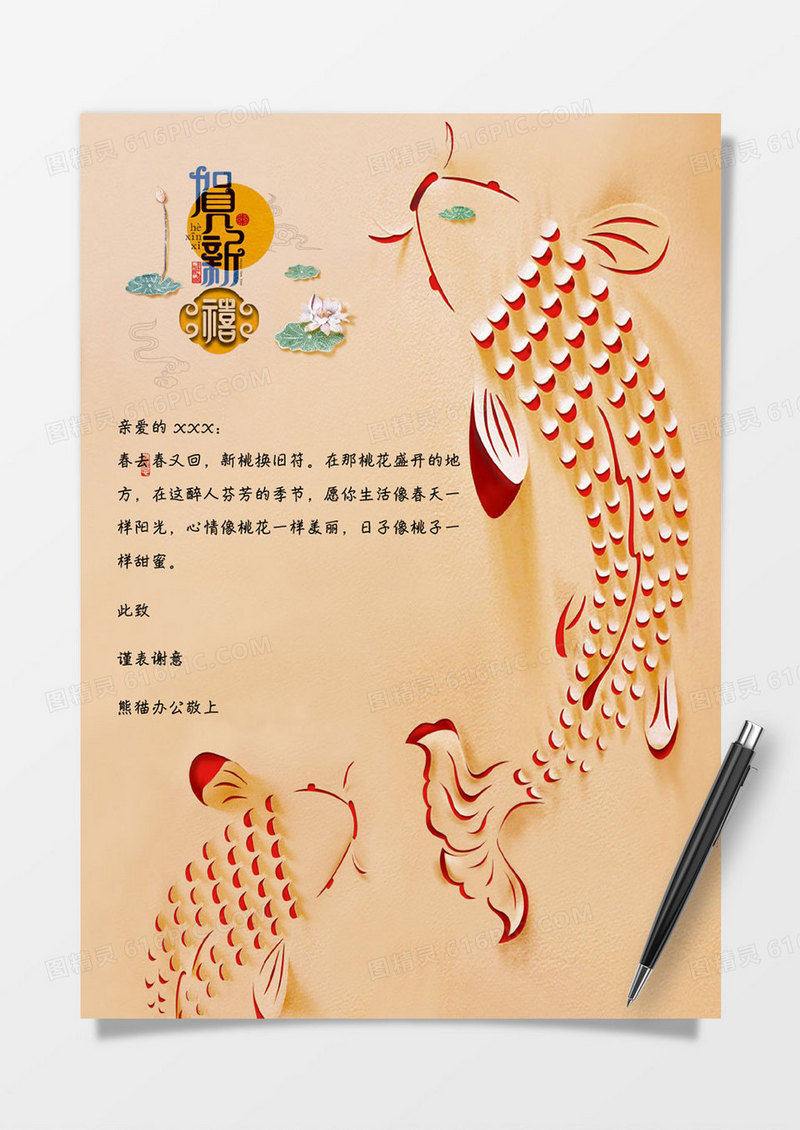 賀新禧
hè
xīn
xǐ
亲爱的 XXX：
春去春又回，新桃换旧符。在那桃花盛开的地
方，在这醉人芬芳的季节，愿你生活像春天一
样阳光，心情像桃花一样美丽，日子像桃子一
样甜蜜。
此致
谨表谢意
熊猫办公敬上
图精灵 616PIC.COM